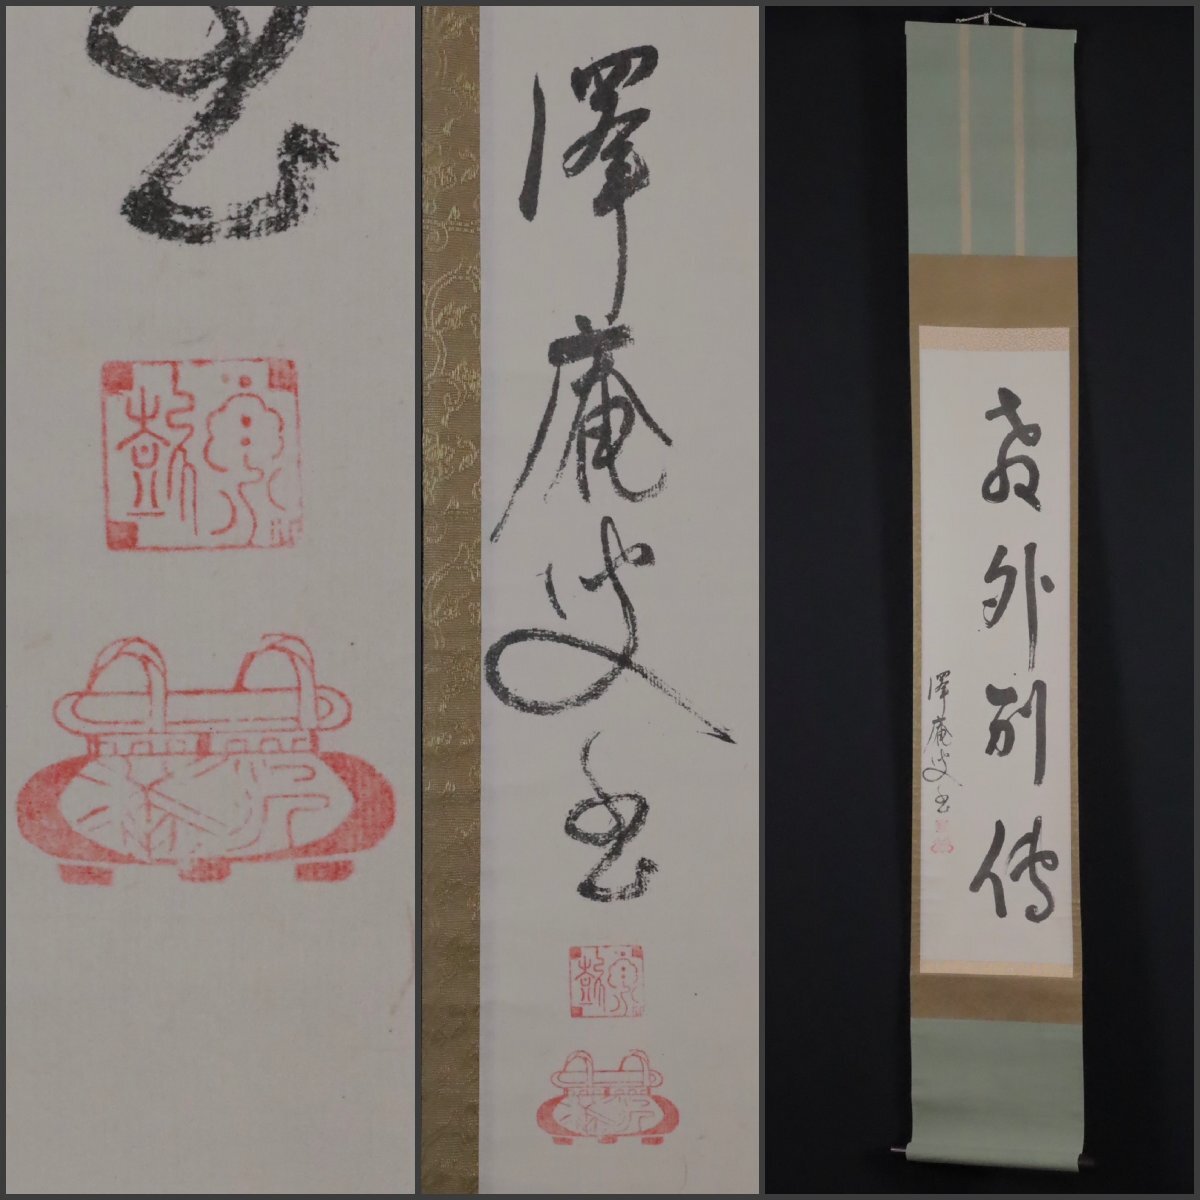 澤庵叟書
教外別傳
澤庵叟書